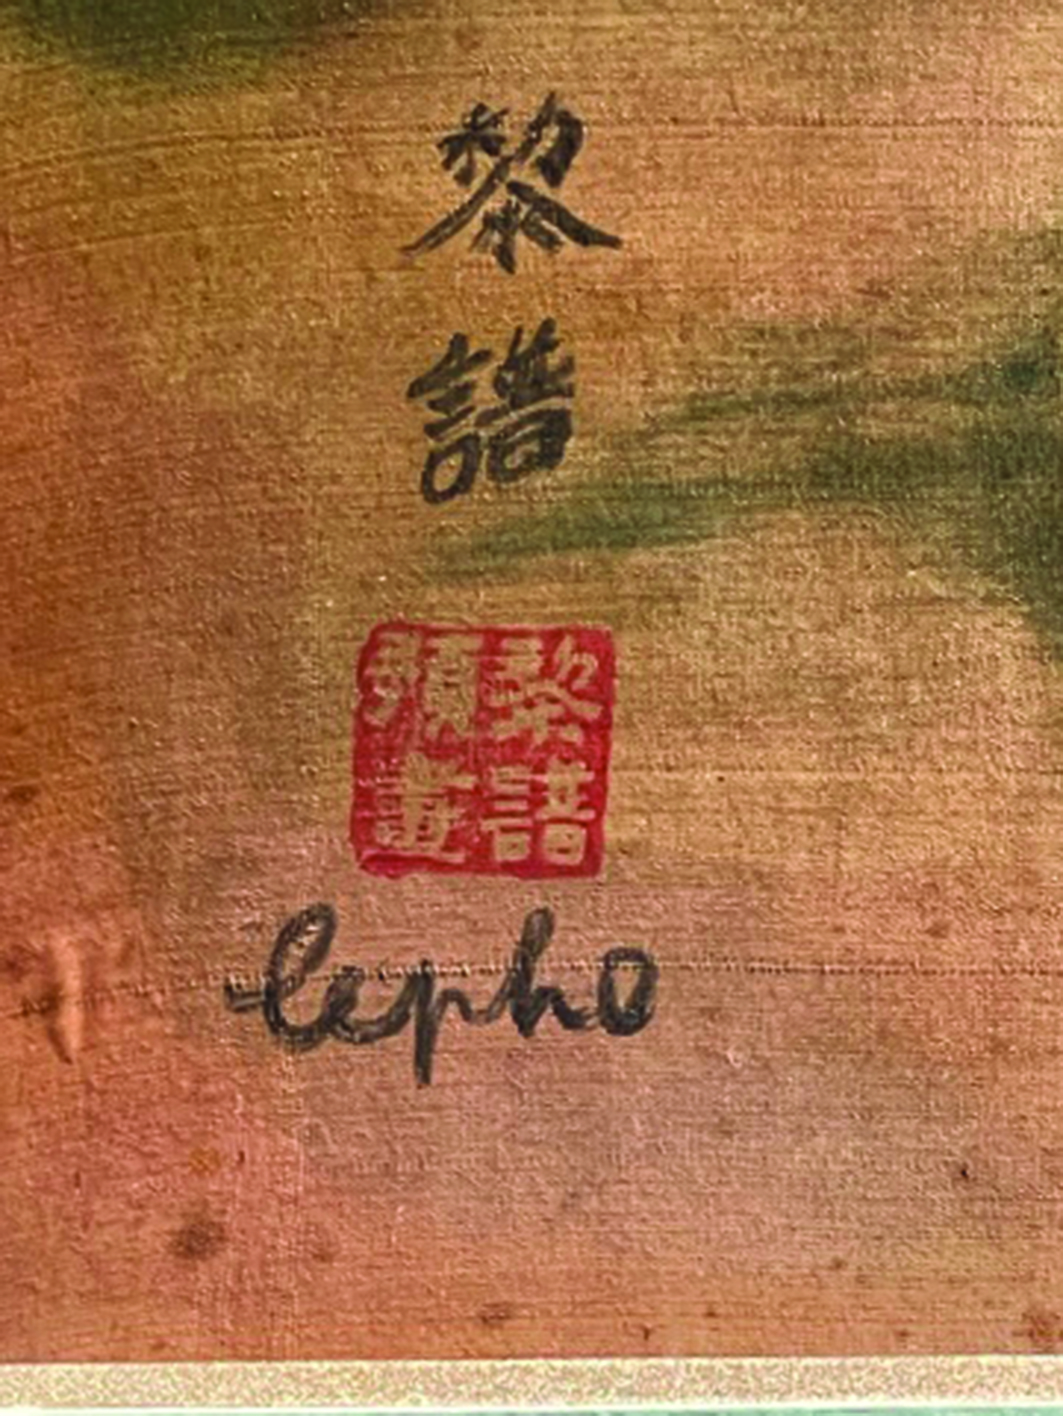 黎譜
黎譜
畫
lepho